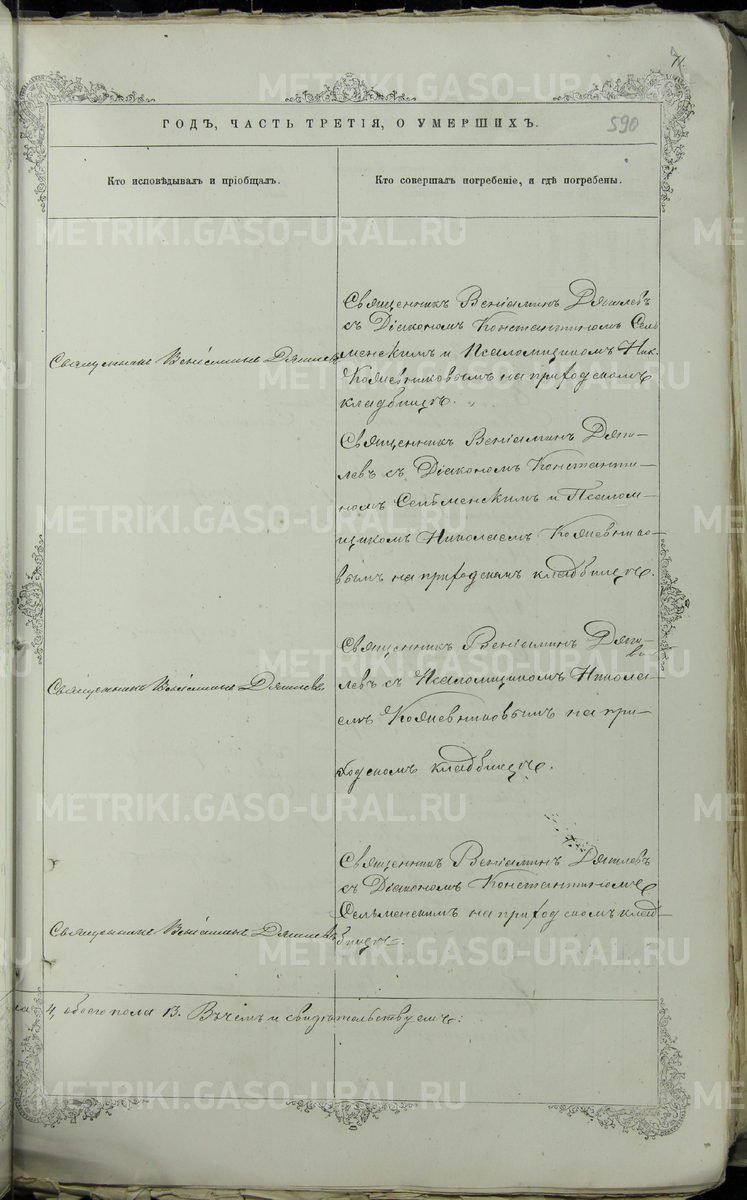 71.
ГОДЪ, ЧАСТЬ ТРЕТІЯ, О УМЕРШИХЪ.
590
Кто исповѣдывалъ и пріобщалъ.
Кто совершалъ погребеніе, и гдѣ погребены.
Священникъ Веніаминъ Дягилевъ
Священникъ Веніаминъ Дягилевъ
съ Діакономъ Константиномъ Сель-
менскимъ и Псаломщикомъ Ник.
на приходскомъ
кладбищѣ.
Священникъ Веніаминъ Дяги-
левъ съ Діакономъ Константи-
номъ Сельменскимъ и Псалом-
щикомъ Николаемъ
вымъ на приходскомъ кладбищѣ.
Священникъ Веніаминъ Дягилевъ
Священникъ Веніаминъ Дяги-
левъ съ Псаломщикомъ Никола-
емъ на при-
ходскомъ кладбищѣ.
Священникъ Веніаминъ Дягилевъ
Священникъ Веніаминъ Дягилевъ
съ Діакономъ Константиномъ
Сельменскимъ на приходскомъ клад-
бищѣ.
4, обоего пола 13. Въ чемъ и свидѣтельствуемъ:
METRIKI.GASO-URAL.RU